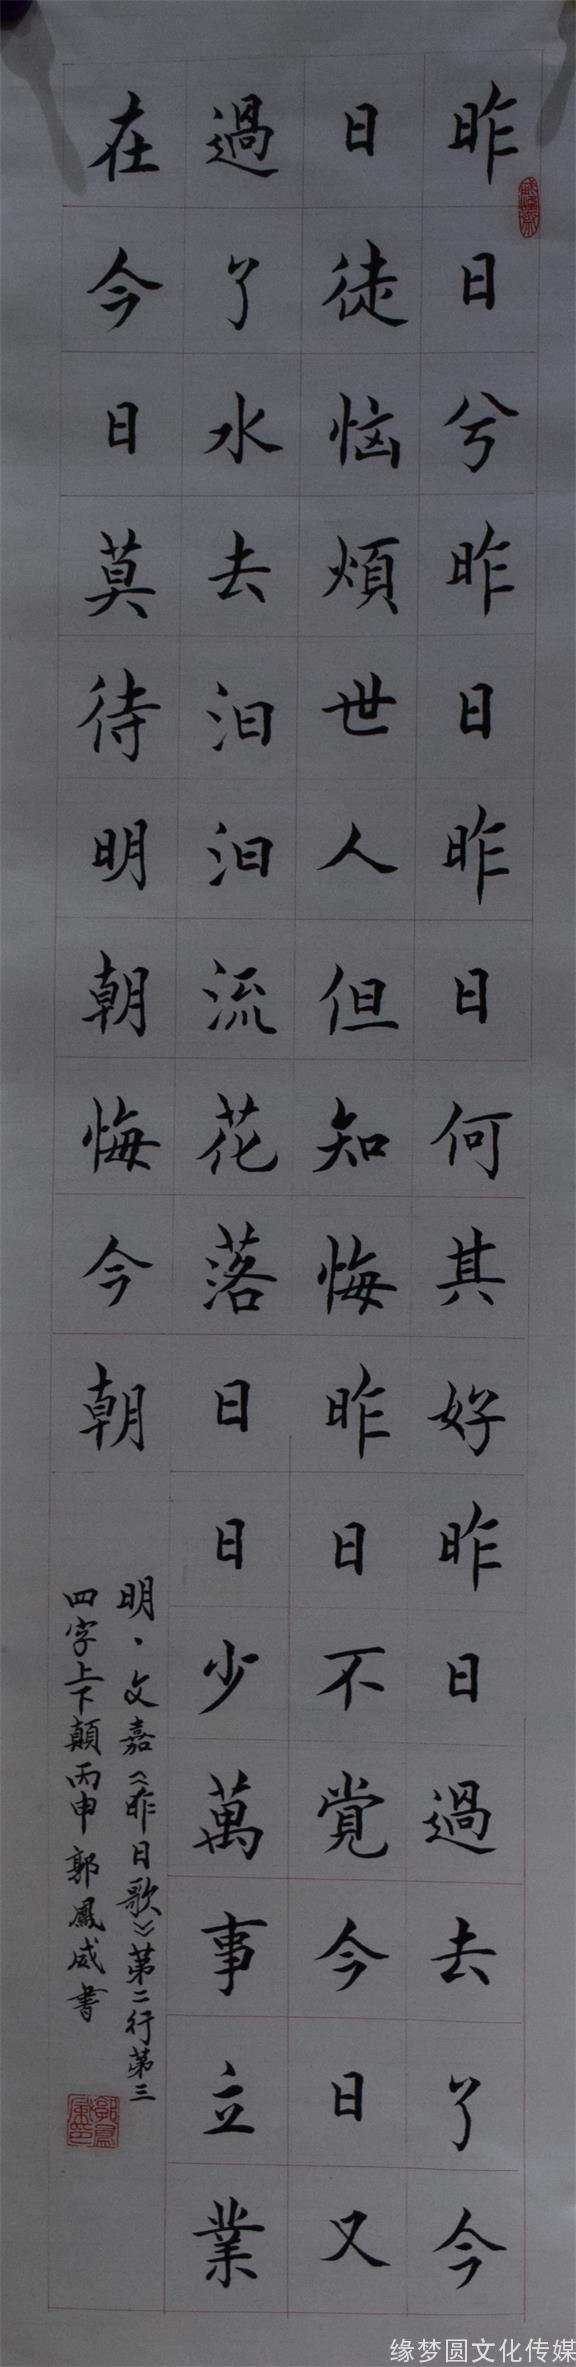 昨日兮昨日昨日何其好昨日過去了今
日徒恼煩世人但知悔昨日不覚今日又
過了水去汩汩流花落日日少萬事立業
在今日莫待明朝悔今朝
明、文嘉《昨日歌》第二行第三
四字上下顛丙申郭鳳成書
缘梦圆文化传媒